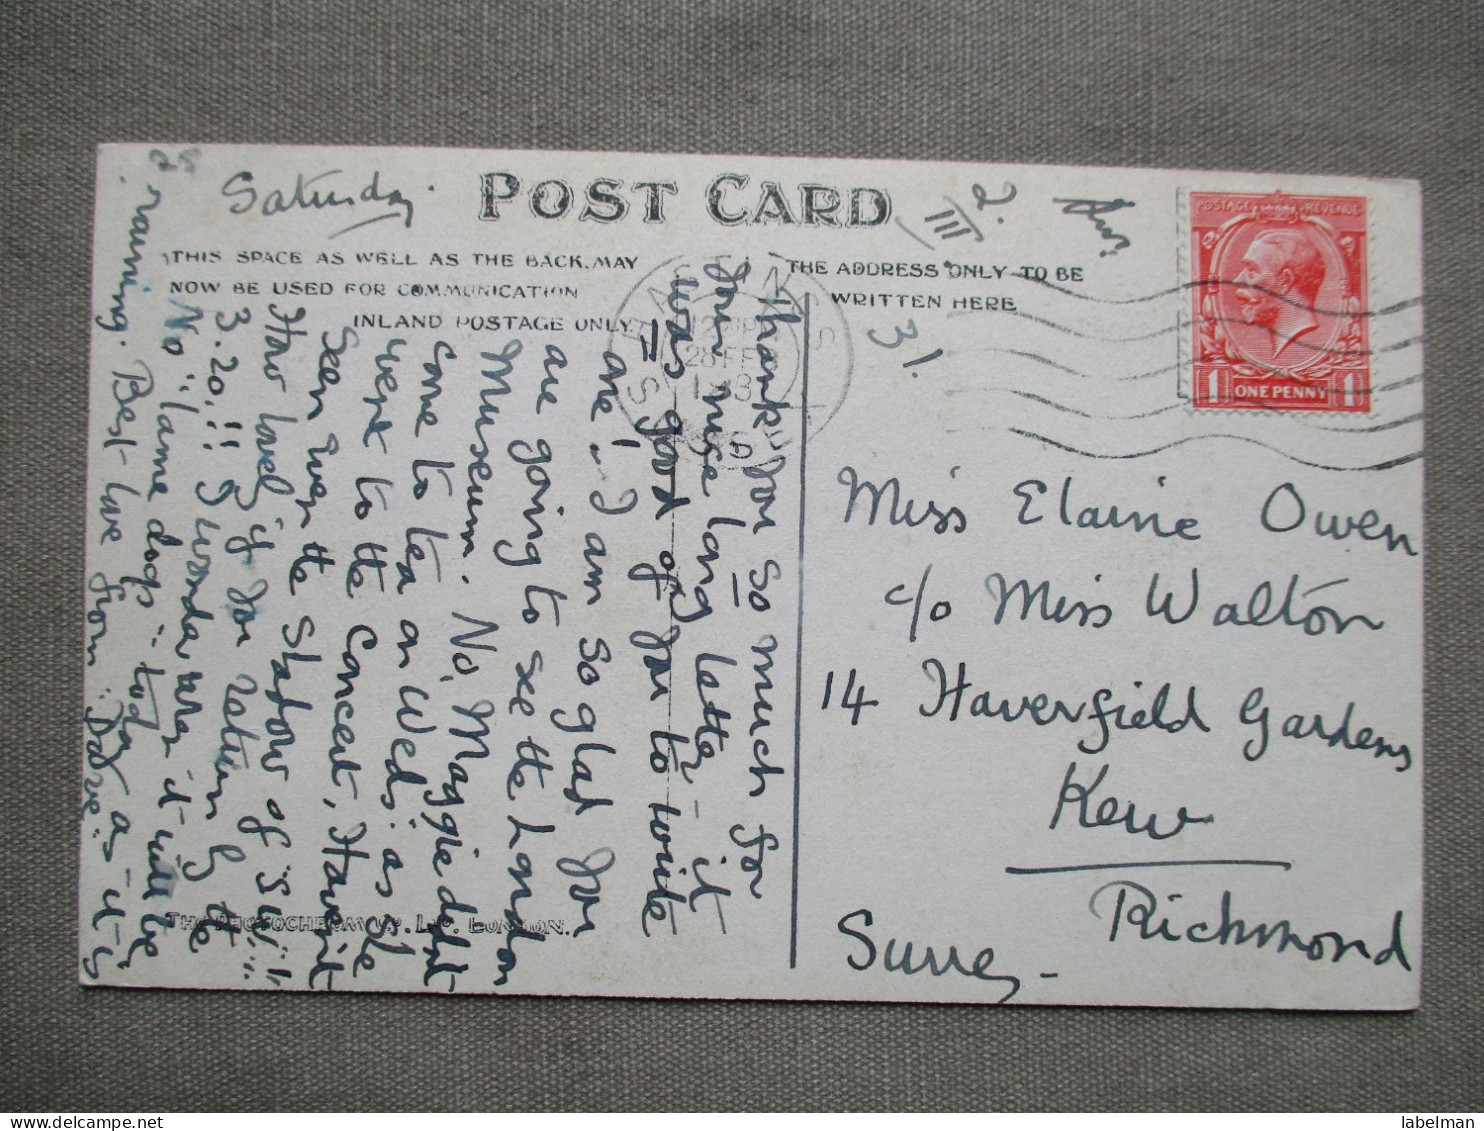 Saturday.
POST CARD
THIS SPACE AS WELL AS THE BACK, MAY
NOW BE USED FOR COMMUNICATION
INLAND POSTAGE ONLY.
THE ADDRESS ONLY TO BE
WRITTEN HERE
2.
III
31.
POSTAGE REVENUE
1 ONE PENNY 1
28 FE
Thank you so much for
your nice long letter - it
was good of you to write
one! I am so glad you
are going to see the London
Museum. No, Maggie didn't
come to tea on Weds: as she
went to the Concert, Haven't
seen even the shadow of "Su:"
How lovely if you return by the
3.20,!! I wonder where it will be
No "lame dogs" today as it is
raining. Best love from
Miss Elaine Owen
c/o Miss Walton
14 Haverfield Gardens
Kew
Richmond
Surrey -
THE PHOTOCHROM CO. LTD. LONDON.
labelman